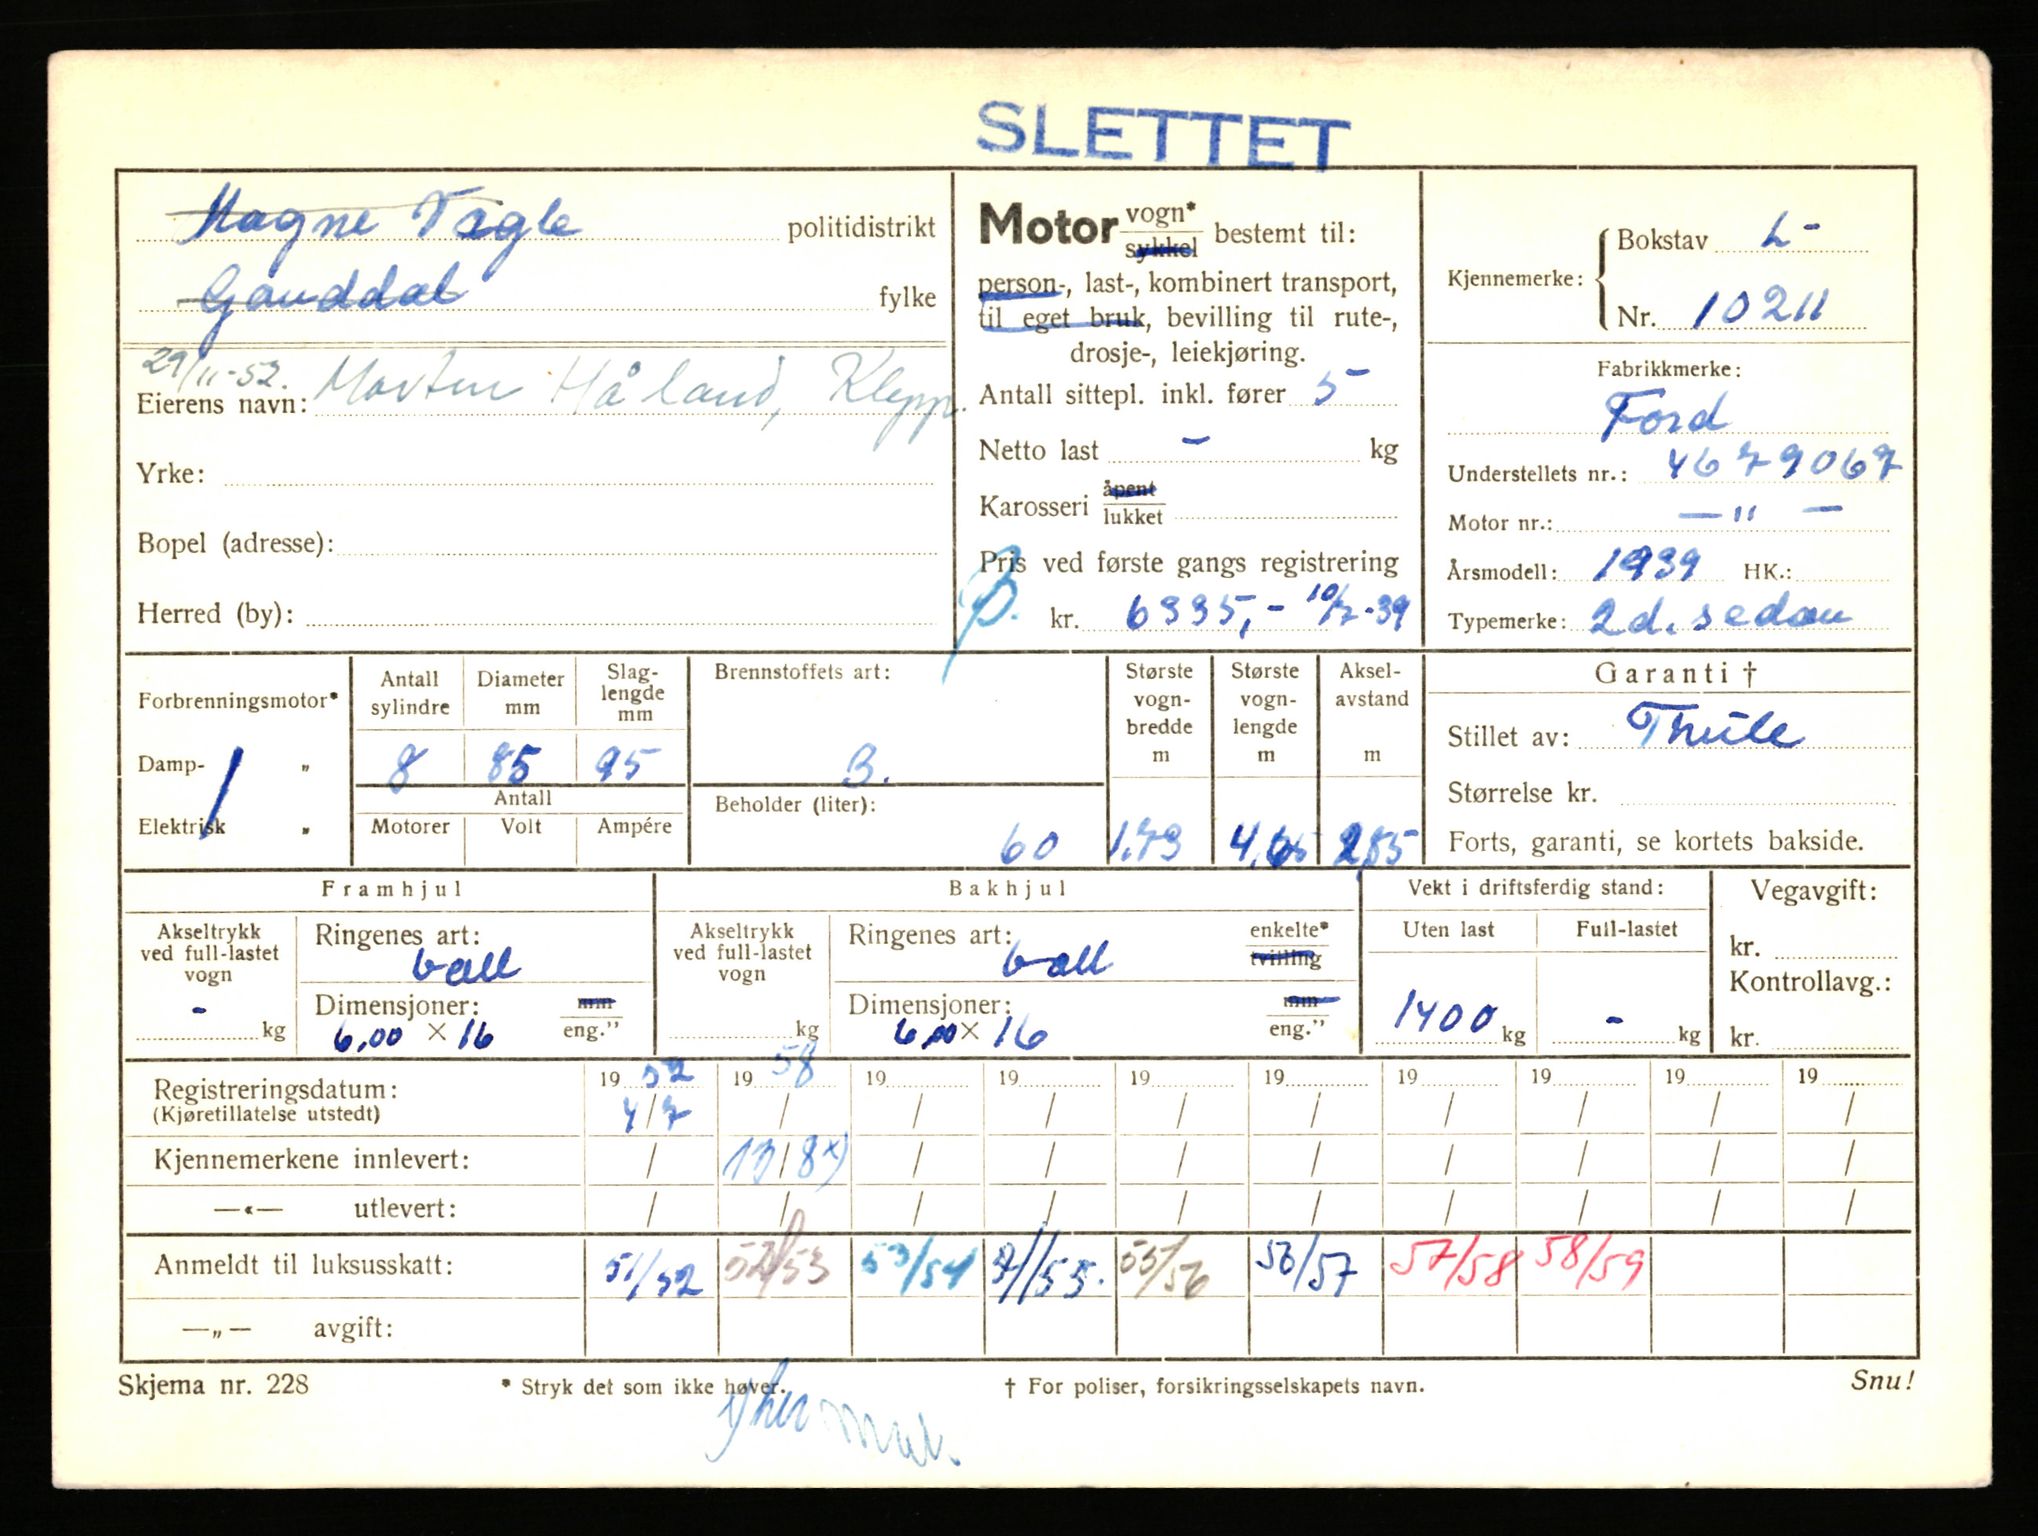 SLETTET
Magne Vagle politidistrikt
Ganddal fylke
29/11-52. Morten Håland, Klepp.
Eierens navn:
Yrke:
Bopel (adresse):
Herred (by):
Motor vogn* sykkel bestemt til:
person-, last-, kombinert transport,
til eget bruk, bevilling til rute-,
drosje-, leiekjøring.
Antall sittepl. inkl. fører 5
Netto last - kg
Karosseri åpent lukket
Pris ved første gangs registrering
kr. 6335,- 10/7-39
Kjennemerke: Bokstav L-
Nr. 10211
Fabrikkmerke:
Ford
Understellets nr.: 4679067
Motor nr.: — " —
Årsmodell: 1939 HK.:
Typemerke: 2d. sedan
Forbrenningsmotor*
Damp- „
Elektrisk „
Antall sylindre Diameter mm Slag-lengde mm
8 85 95
Antall
Motorer Volt Ampére
Brennstoffets art:
B.
Beholder (liter):
60
Største vogn-bredde m
1.73
Største vogn-lengde m
4,65
Aksel-avstand m
2,85
Garanti †
Stillet av: Thule
Størrelse kr.
Forts, garanti, se kortets bakside.
Framhjul
Akseltrykk ved full-lastet vogn
- kg
Ringenes art:
ball
Dimensjoner: mm
6,00 × 16 eng."
Bakhjul
Akseltrykk ved full-lastet vogn
kg
Ringenes art: enkelte*
ball tvilling
Dimensjoner: mm
6,00 × 16 eng."
Vekt i driftsferdig stand:
Uten last Full-lastet
1400 kg - kg
Vegavgift:
kr.
Kontrollavg.:
kr.
Registreringsdatum: 19 52 19 58 19 19 19 19 19 19 19 19
(Kjøretillatelse utstedt) 4/7 / / / / / / / / /
Kjennemerkene innlevert: / 13/8 x) / / / / / / / /
—«— utlevert: / / / / / / / / / /
Anmeldt til luksusskatt: 51/52 52/53 53/54 /55. 55/56 56/57 57/58 58/59
—„— avgift:
Skjema nr. 228 * Stryk det som ikke høver. † For poliser, forsikringsselskapets navn. Snu!